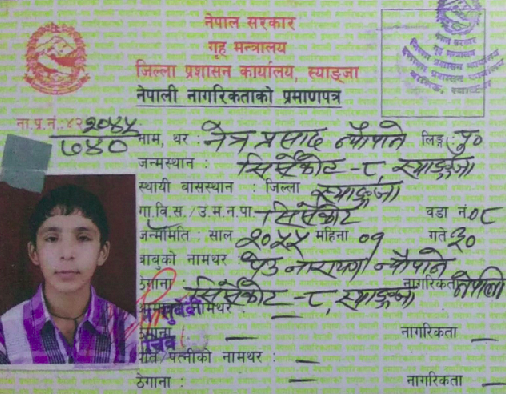 नेपाल सरकार
गृह मन्त्रालय
जिल्ला प्रशासन कार्यालय, स्याङ्जा
नेपाली नागरिकताको प्रमाणपत्र
ना.प्र.नं.:४२
७४०
नाम, थर : नेत्र प्रसाद न्यौपाने लिङ्ग पु०
जन्मस्थान : सिर्सेकोट -८, स्याङ्जा
स्थायी बासस्थान : जिल्ला स्याङ्जा
गा.वि.स./उ.म.न.पा. सिर्सेकोट वडा नं.०८
जन्ममिति : साल २०५५ महिना ०१ गते ३०
बाबुको नामथर नारायण न्यौपाने
ठेगाना : सिर्सेकोट -८, स्याङ्जा नागरिकता नेपाली
नामथर : —
ठेगाना : — नागरिकता —
पति/पत्नीको नामथर : —
ठेगाना : — नागरिकता —